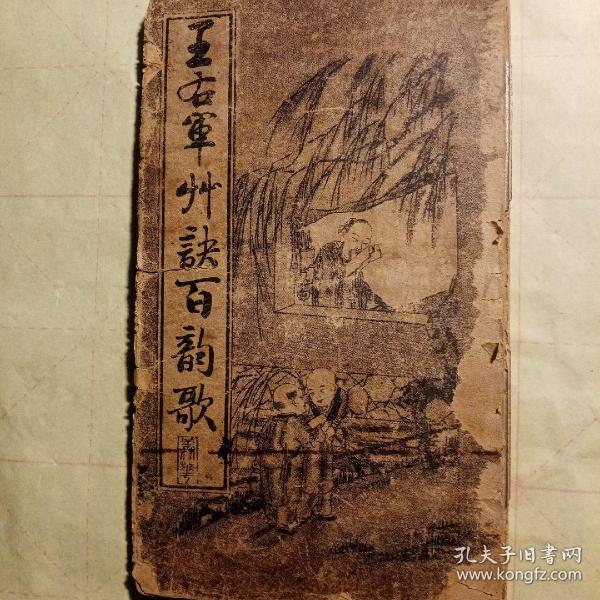 王右軍艸訣百韵歌
孔夫子旧書网
www.kongfz.com